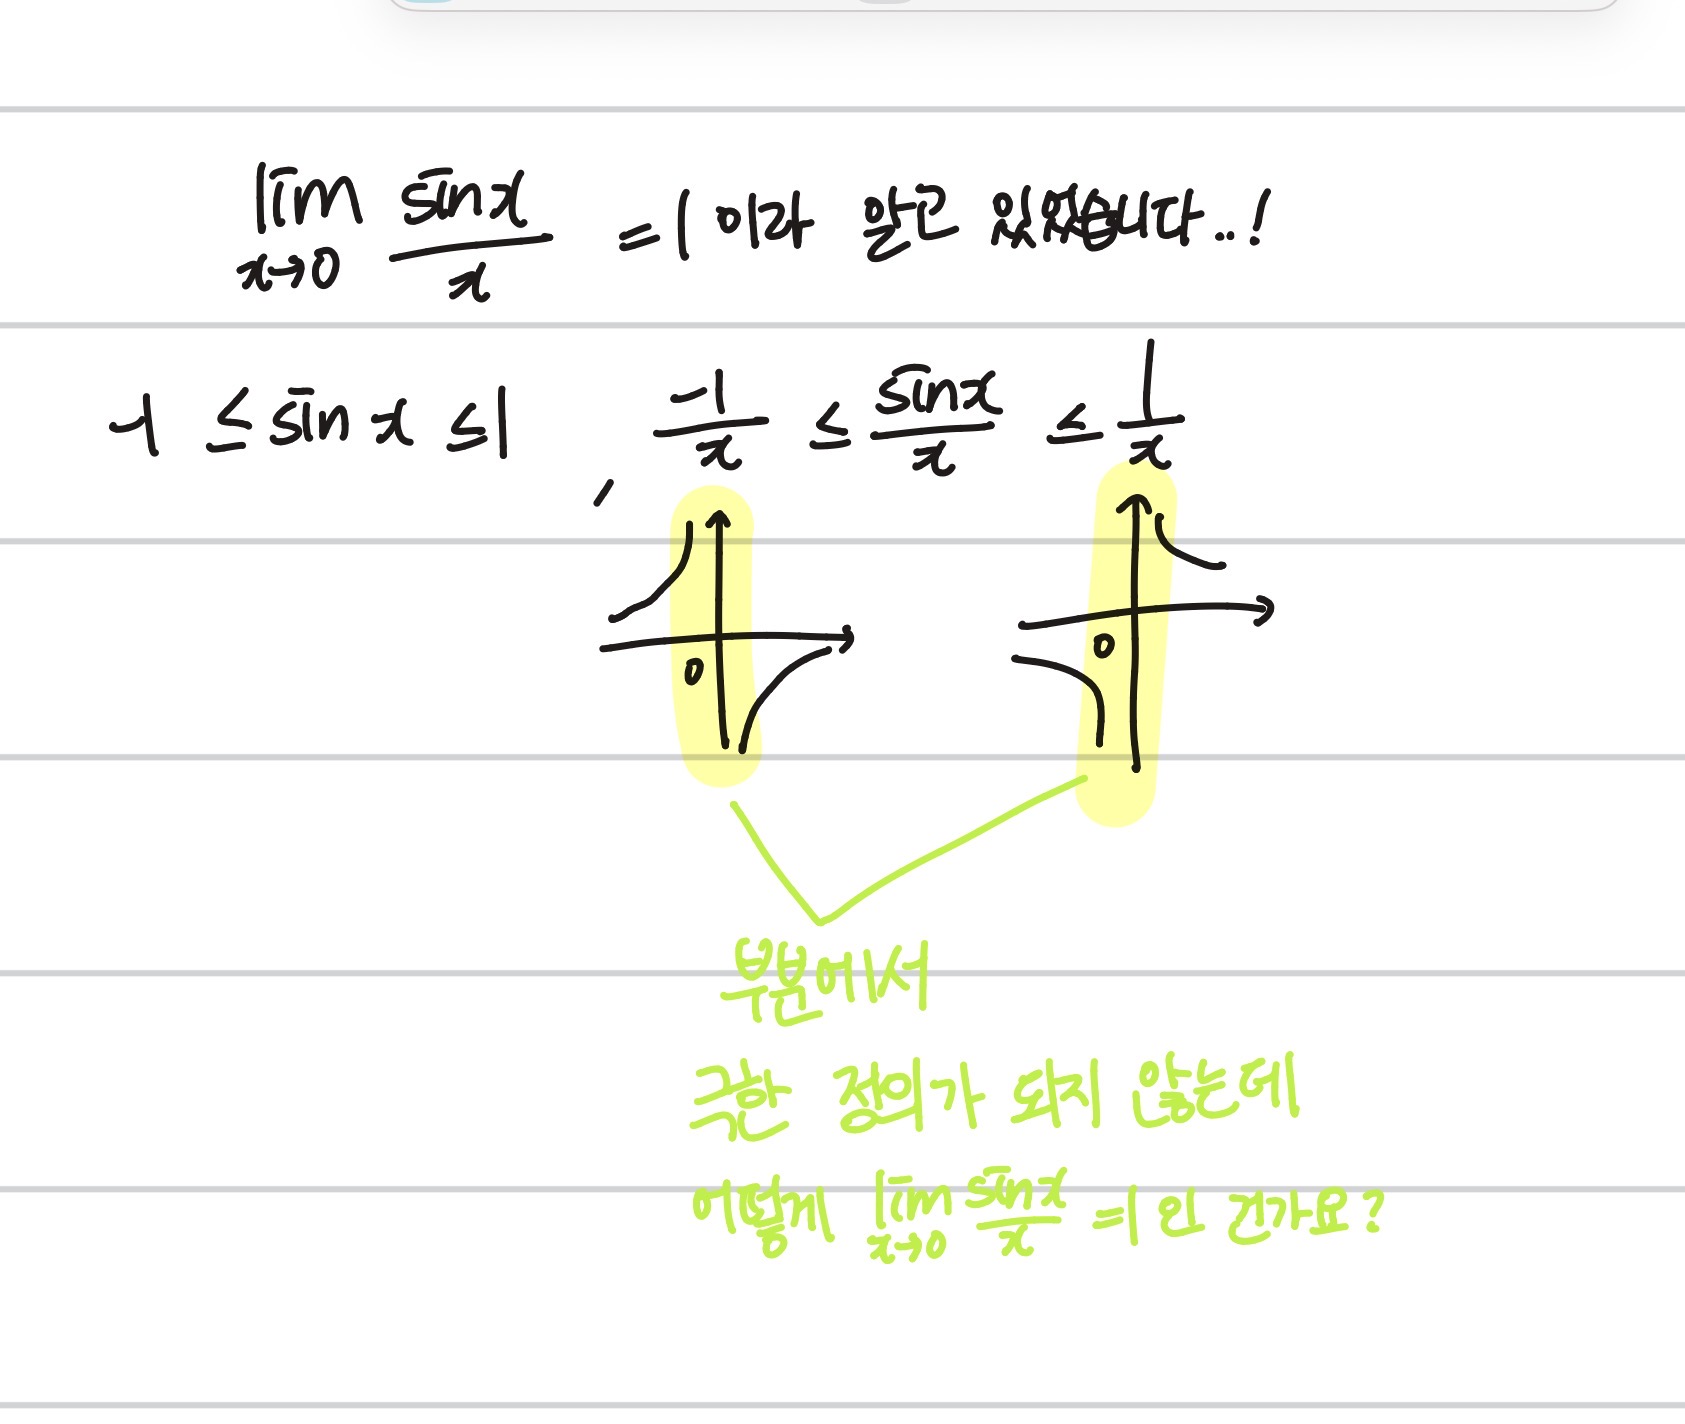 lim x→0 sinx/x =1 이라 알고 있었습니다..!
-1 ≤ sin x ≤ 1 , -1/x ≤ sinx/x ≤ 1/x
0 0
부분에서
극한 정의가 되지 않는데
어떻게 lim x→0 sinx/x =1 인 건가요?